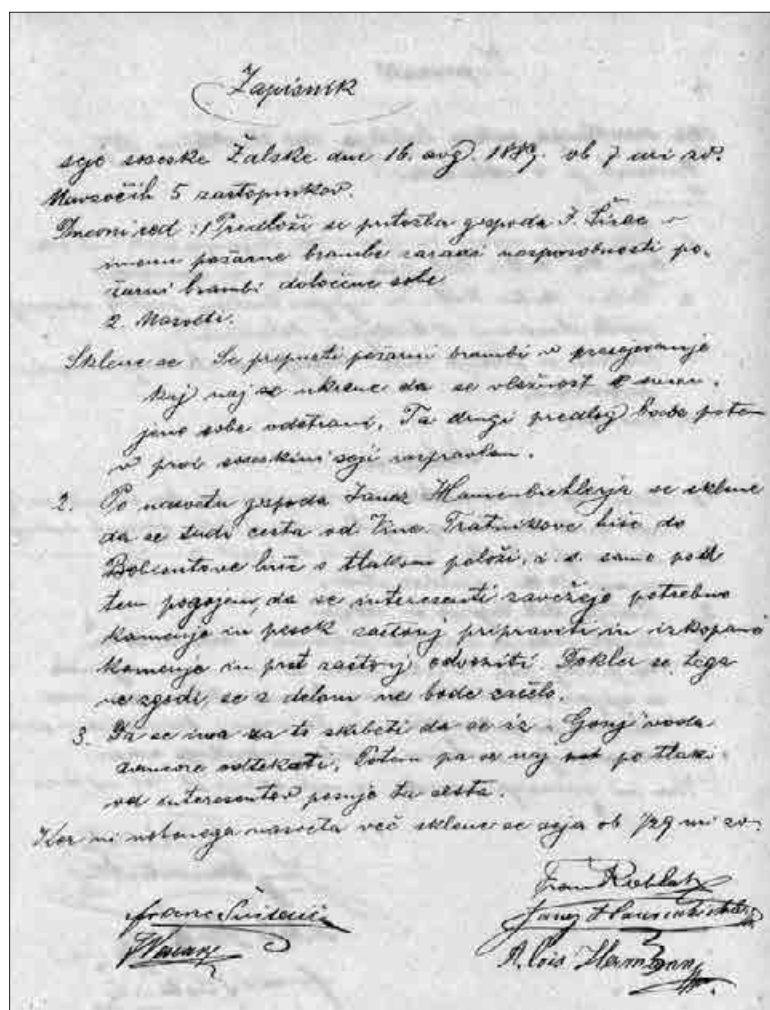 Zapisnik
seje soseske Žalske dne 16. avg. 1889. ob 7 uri zv.
Navzočih 5 zastopnikov.
Dnevni red: 1 Predloži se pritožba gospoda J. Širce v
imenu požarne brambe zaradi nesposobnosti po-
žarni brambi določene sobe
2. Nasveti.
Sklene se: Se prepusti požarni brambi v presojevanje
kaj naj se ukrene da se vlažnost
sobe odstrani. Ta drugi predlog bode potem
v prvi soseskini seji razpravlan.
2. Po nasvetu gospoda Janez Hausenbichlerja se sklene
da se tudi cesta od Vinc. Tratnikove hiše do
hiš s tlakom položi, i. s. samo pod
tem pogojem, da se interesenti zavežejo potrebno
kamenje in pesek zastonj pripraviti in izkopano
kamenje in prst zastonj odvoziti. Dokler se tega
ne zgodi, se z delom ne bode začelo.
3. Da se ima za to skrbeti da se iz Gonj voda
zamore odtekati. Potem pa se naj po tlaki
od interesentov posuje ta cesta.
Ker ni nobenega nasveta več sklene se seja ob 1/29 uri zv.
Fran Roblek
Janez Hausenbichler
Alois Hermann